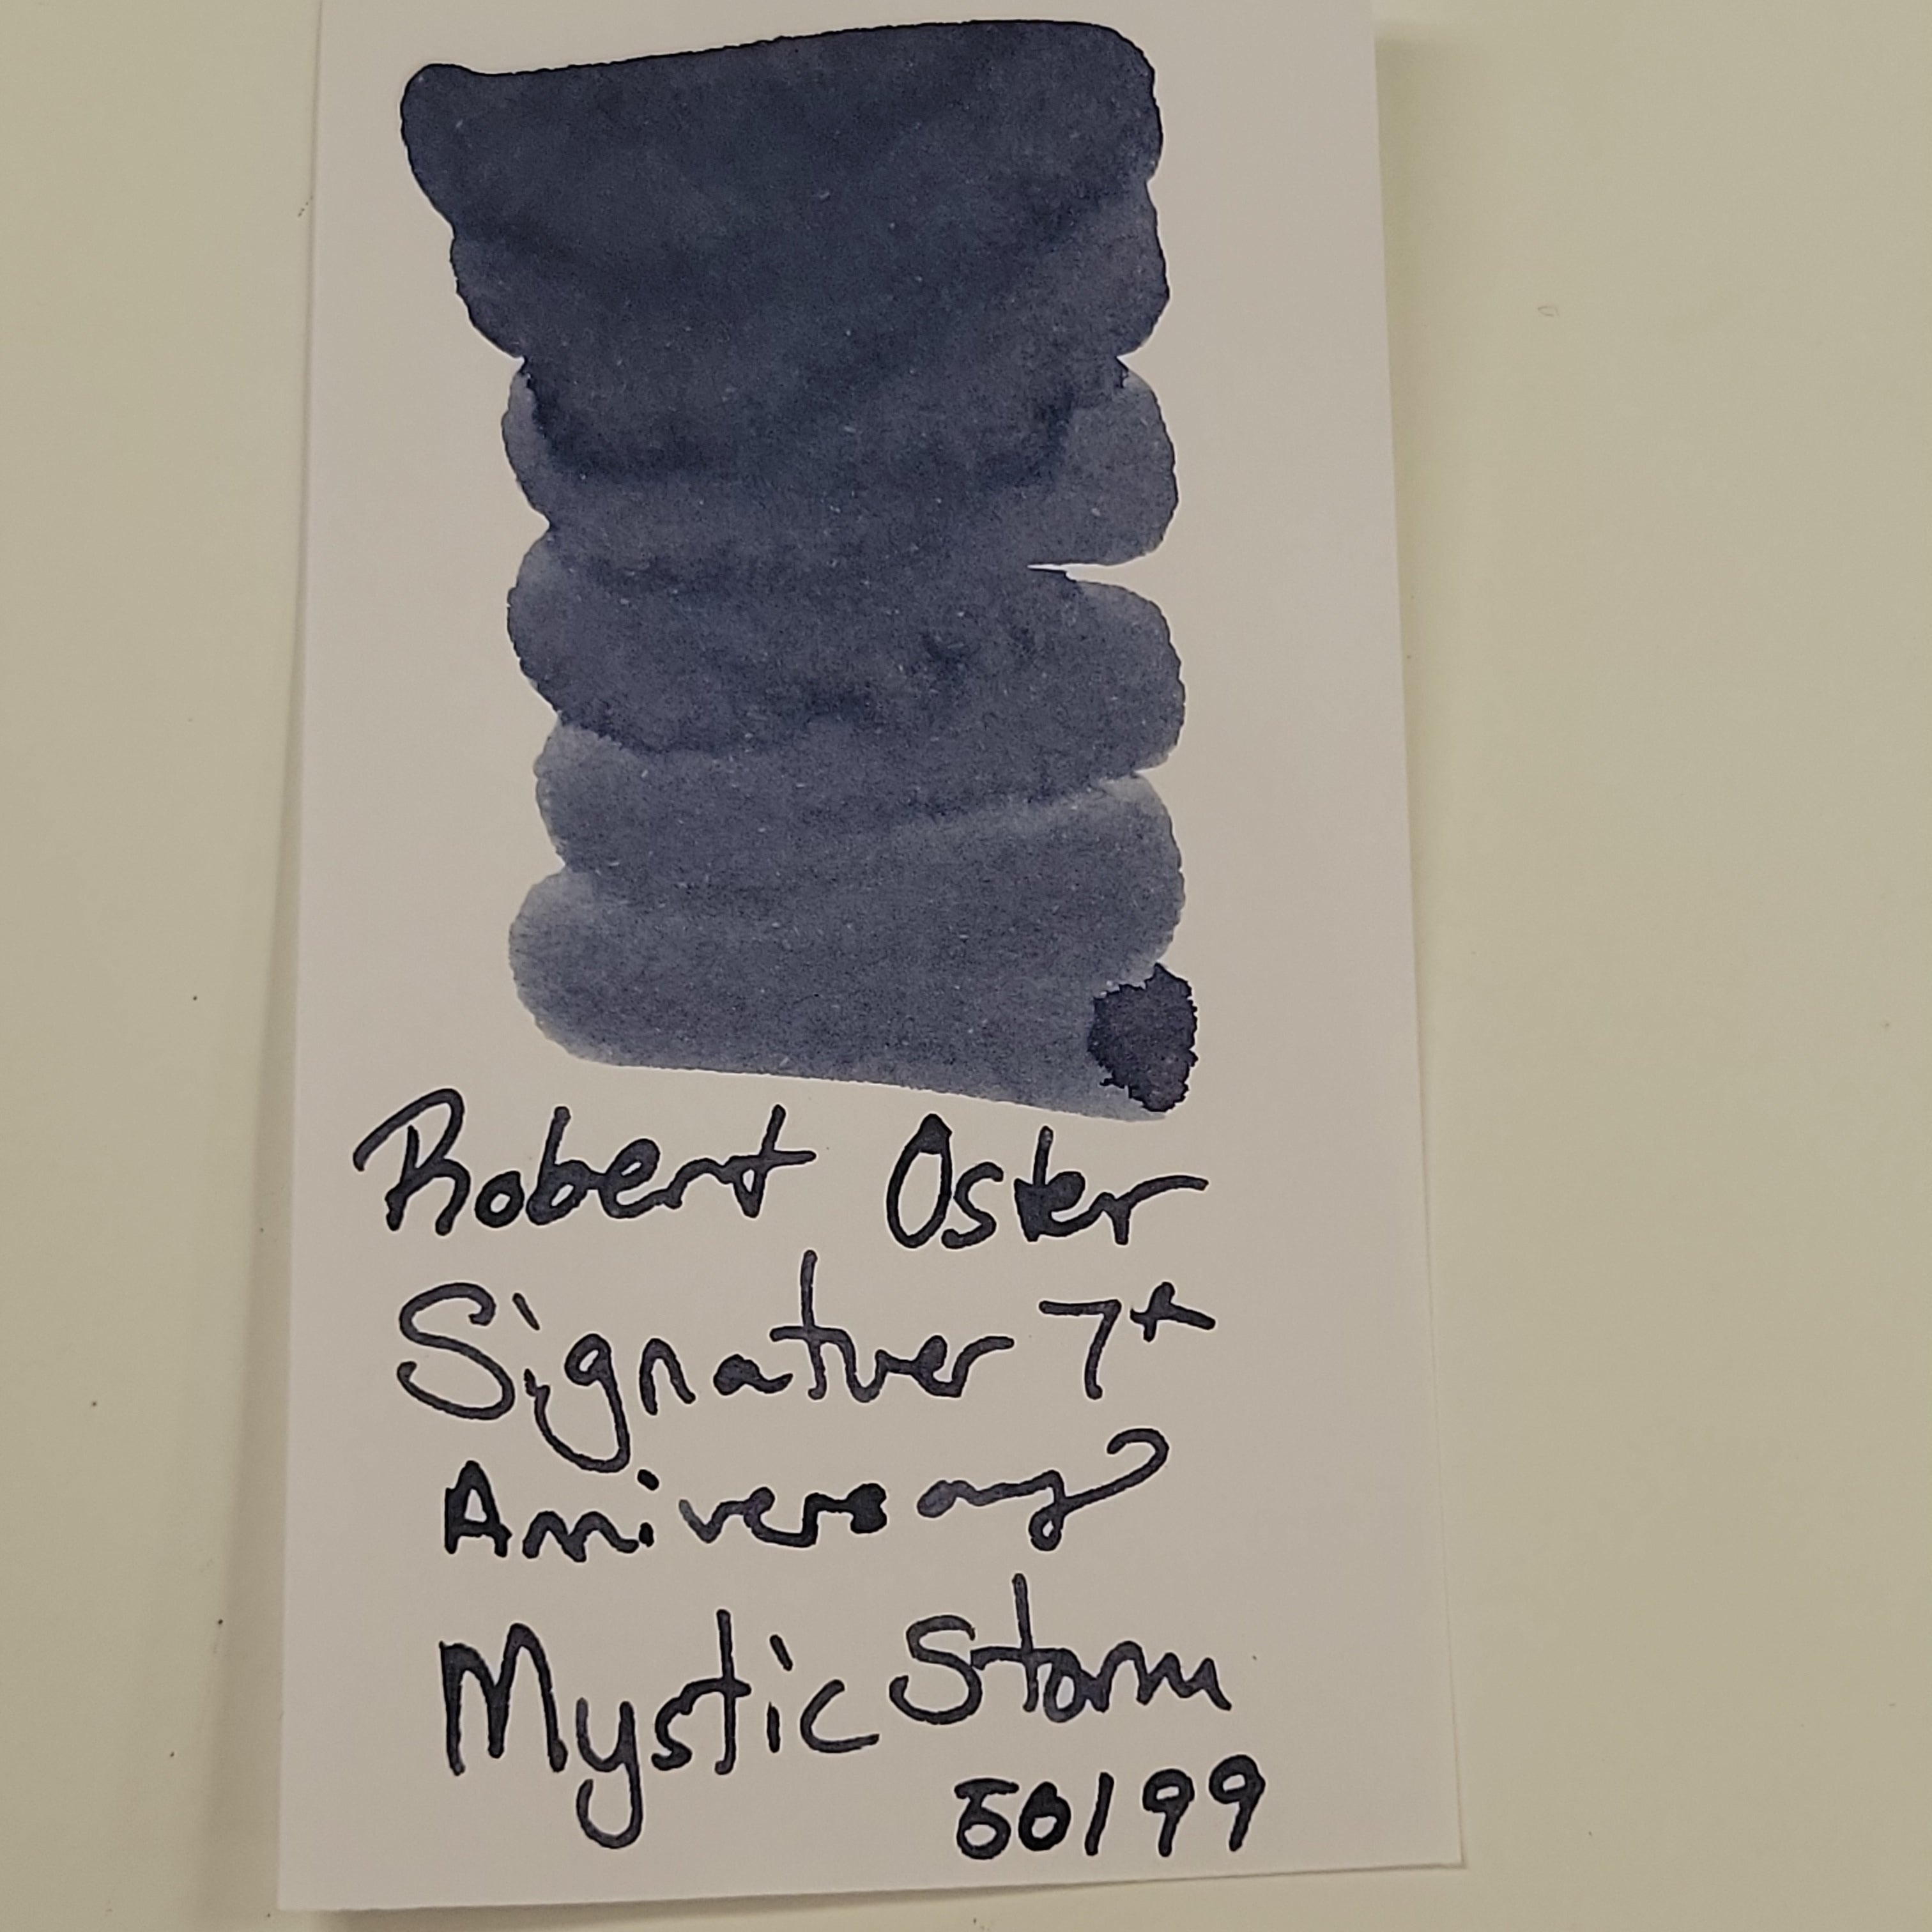 Robert Oster
Signatuer 7th
Anniversary
Mystic Storm
50/99